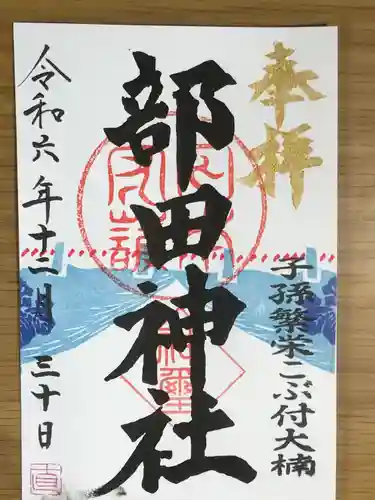 奉拝
子孫繁栄こぶ付大楠
部田神社
令和六年十二月三十日